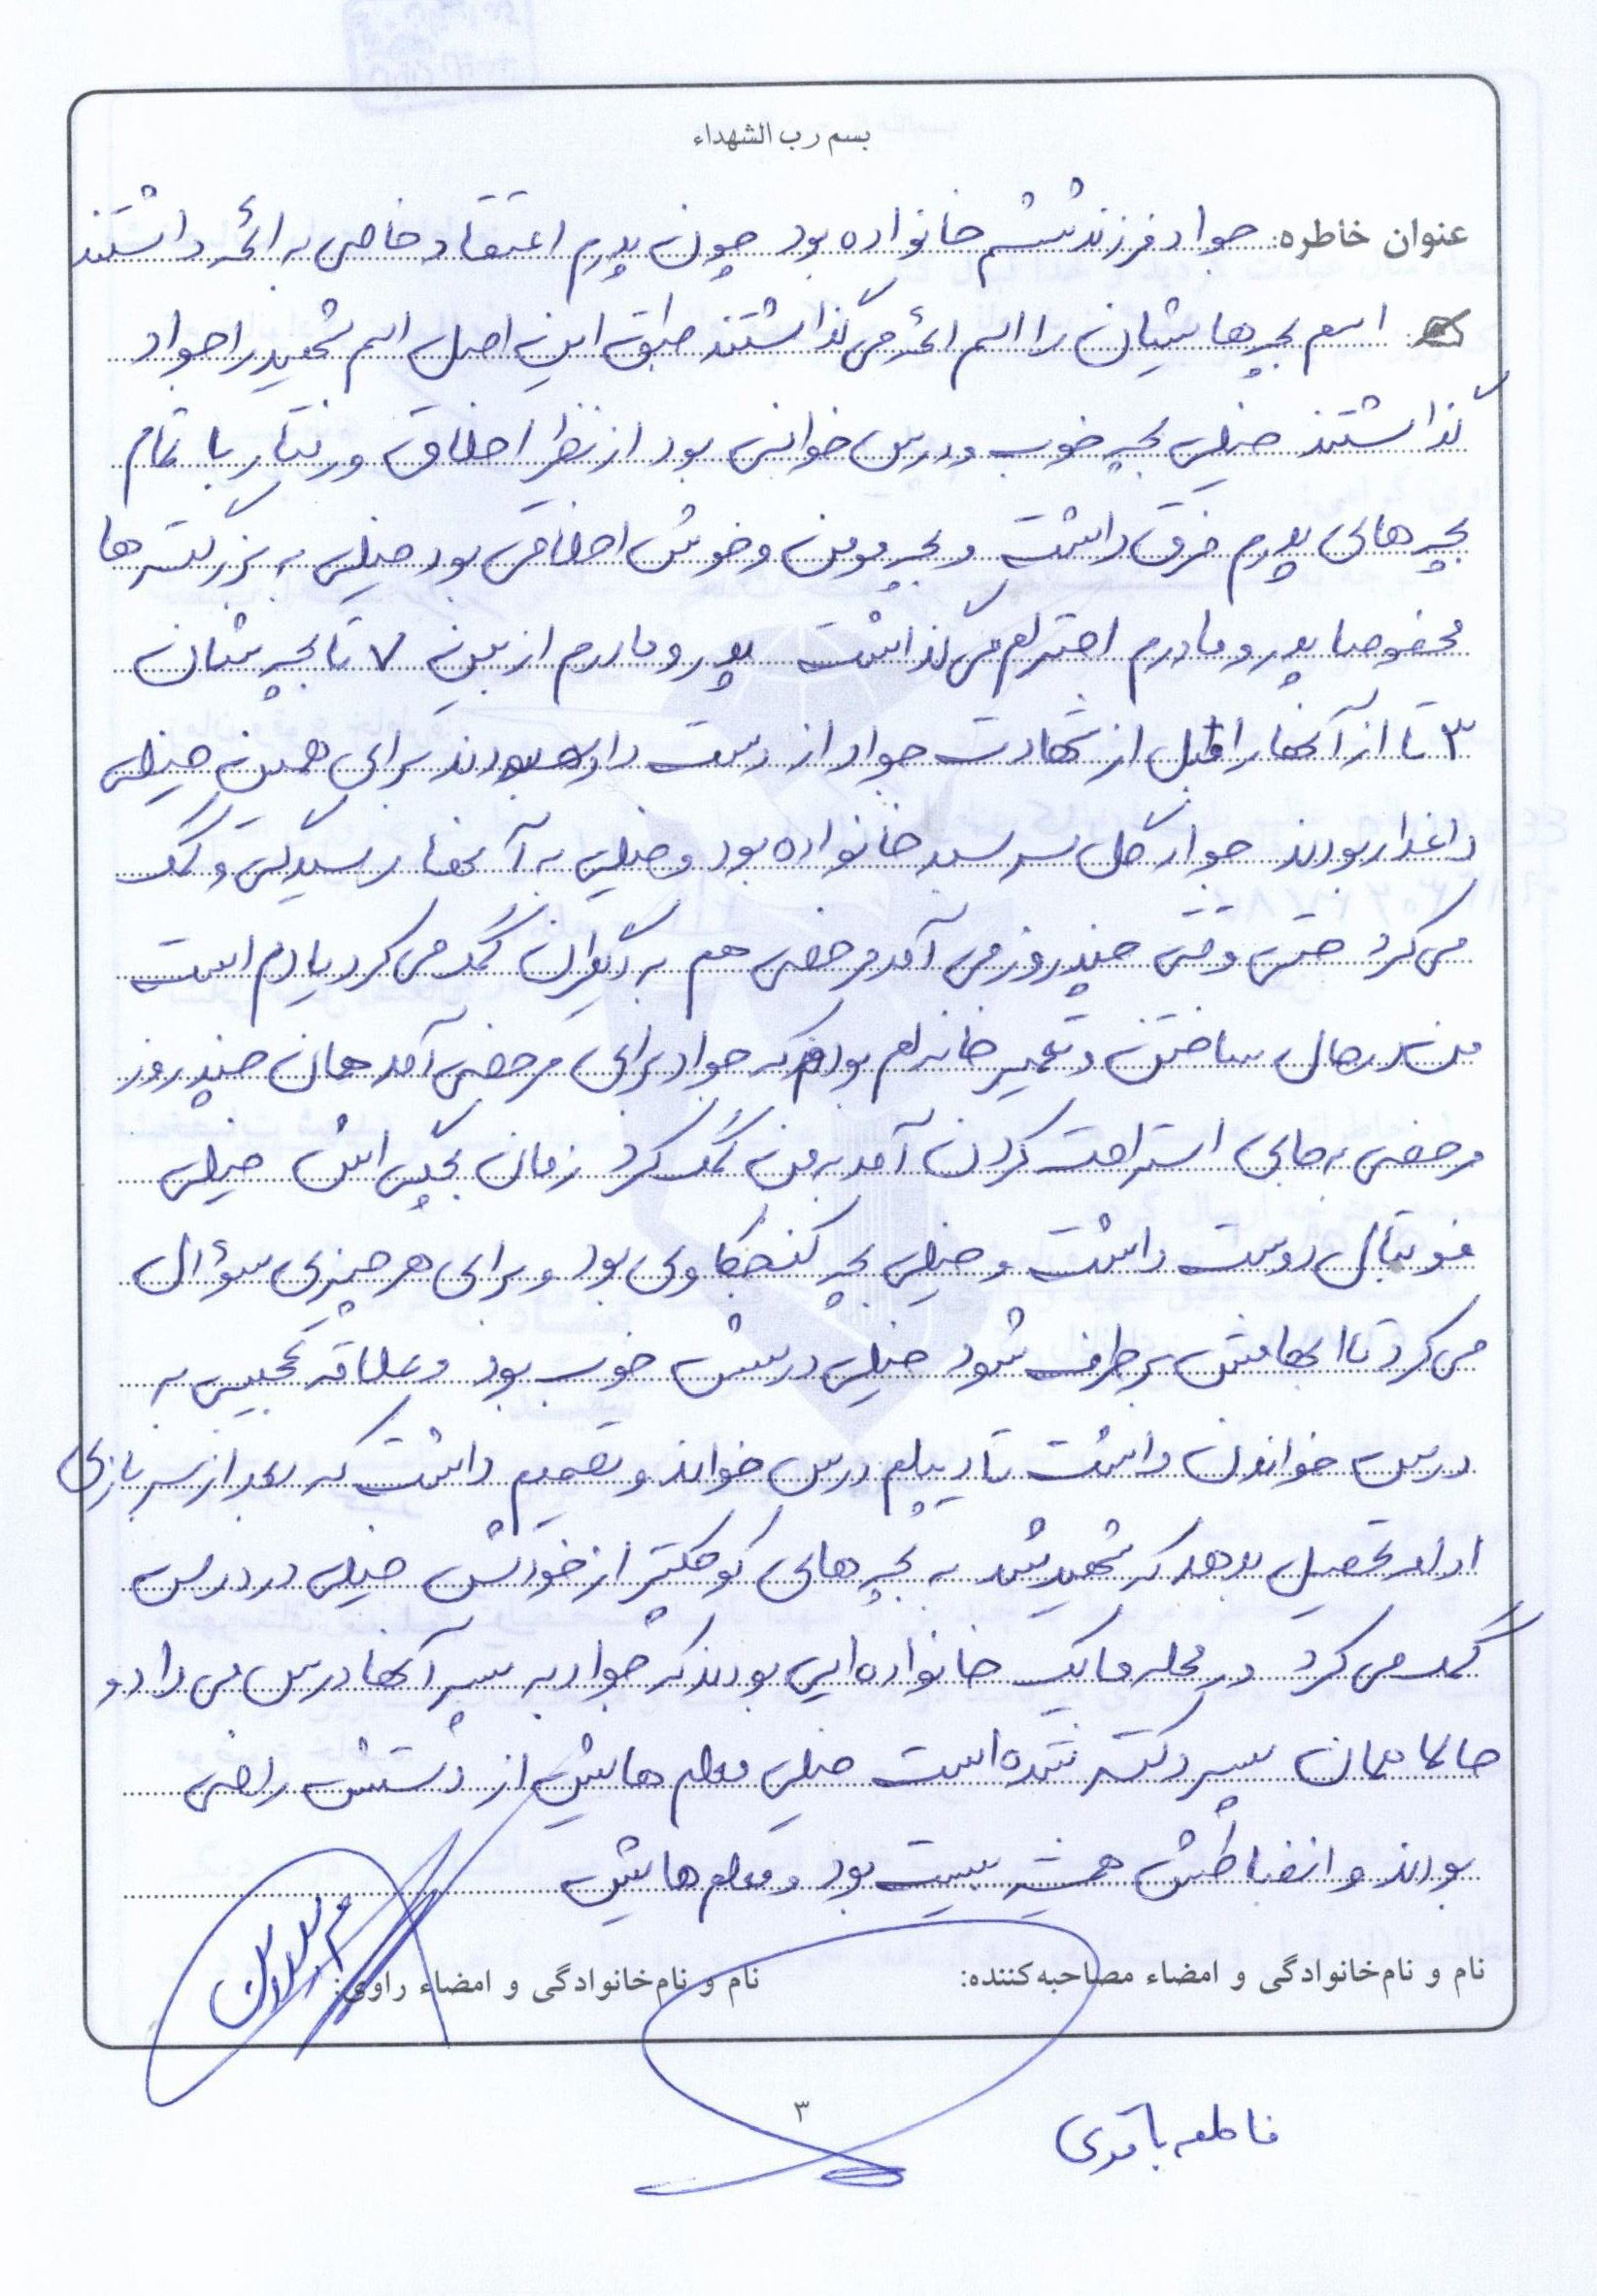 بسم رب الشهداء
عنوان خاطره: جواد فرزند ششم خانواده بود چون پدرم اعتقاد خاصی به ائمه داشتند
اسم بچه هایشان را اسم ائمه می گذاشتند طبق این اصل اسم شهید را جواد
گذاشتند خیلی بچه خوب و درس خوانی بود از نظر اخلاق و رفتار با تمام
بچه های پدرم فرق داشت و بچه مومن و خوش اخلاقی بود خیلی به بزرگترها
مخصوصا پدر و مادرم احترام می گذاشت پدر و مادرم از بین ۷ تا بچه شان
۳ تا از آنها را قبل از شهادت جواد از دست داده بودند برای همین خیلی
داغدار بودند جواد گل سرسبد خانواده بود و خیلی به آنها رسیدگی و کمک
می کرد حتی وقتی چند روز می آمد مرخصی هم به دیگران کمک می کرد یادم است
من در حال ساختن و تعمیر خانه ام بودم که جواد برای مرخصی آمد همان چند روز
مرخصی به جای استراحت کردن آمد به من کمک کرد زمان بچگی اش خیلی
فوتبال دوست داشت و خیلی بچه کنجکاوی بود و برای هر چیزی سؤال
می کرد تا ابهامش برطرف شود خیلی درسش خوب بود و علاقه عجیبی به
درس خواندن داشت تا دیپلم درس خواند و تصمیم داشت که بعد از سربازی
ادامه تحصیل بدهد که شهید شد به بچه های کوچکتر از خودش خیلی در درس
کمک می کرد در محله ما یک خانواده ایی بودند که جواد به پسر آنها درس می داد و
حالا همان پسر دکتر شده است خیلی معلم هایش از دستش راضی
بودند و انضباطش همیشه بیست بود و معلم هایش
نام و نام‌خانوادگی و امضاء مصاحبه‌کننده: نام و نام‌خانوادگی و امضاء راوی:
۳
فاطمه باقری